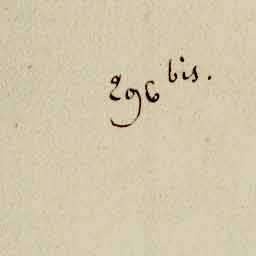 296 bis.